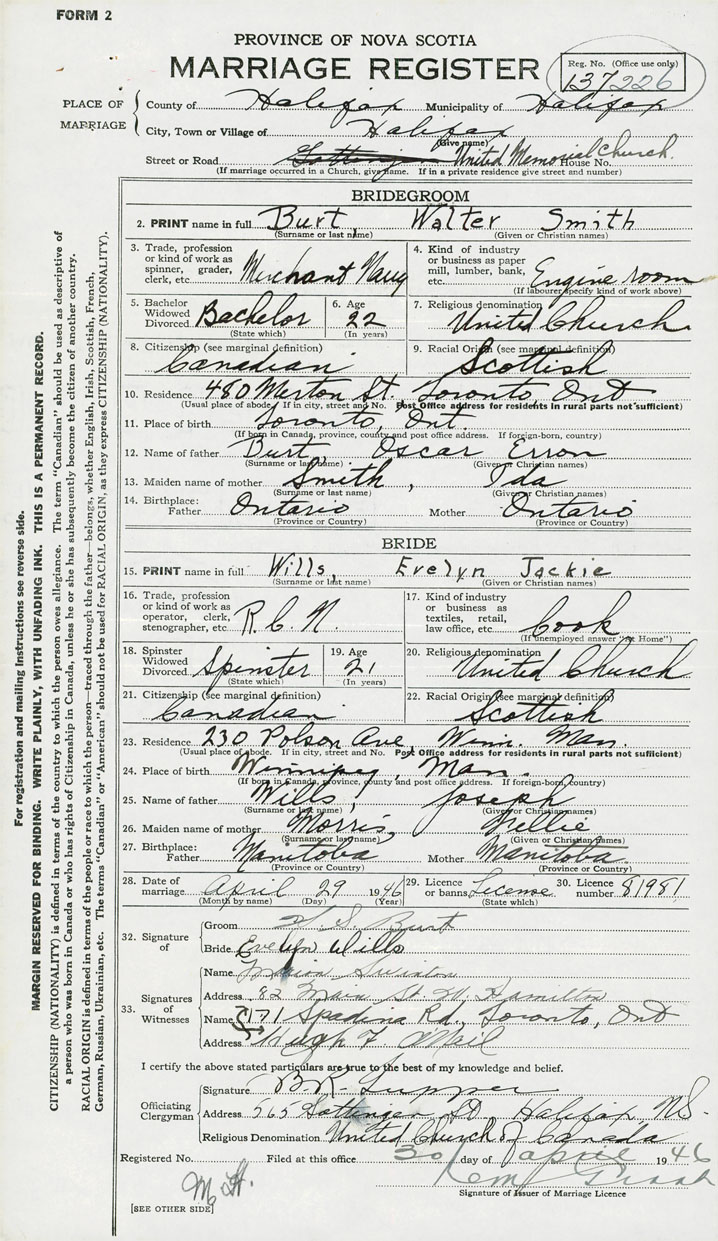 FORM 2
PROVINCE OF NOVA SCOTIA
MARRIAGE REGISTER
Reg. No. (Office use only)
137226
PLACE OF MARRIAGE
County of Halifax Municipality of Halifax
City, Town or Village of Halifax
(Give name)
Street or Road Gottingen United Memorial Church. House No.
(If marriage occurred in a Church, give name. If in a private residence give street and number)
BRIDEGROOM
2. PRINT name in full Burt, Walter Smith
(Surname or last name) (Given or Christian names)
3. Trade, profession or kind of work as spinner, grader, clerk, etc. Merchant Navy
4. Kind of industry or business as paper mill, lumber, bank, etc. Engine room
(If labourer specify kind of work above)
5. Bachelor Widowed Divorced Bachelor
(State which)
6. Age 22
(In years)
7. Religious denomination United Church
8. Citizenship (see marginal definition) Canadian
9. Racial Origin (see marginal definition) Scottish
10. Residence 480 Merton St., Toronto, Ont
(Usual place of abode. If in city, street and No. Post Office address for residents in rural parts not sufficient)
11. Place of birth Toronto, Ont.
(If born in Canada, province, county and post office address. If foreign-born, country)
12. Name of father Burt, Oscar Erron
(Surname or last name) (Given or Christian names)
13. Maiden name of mother Smith, Ida
(Surname or last name) (Given or Christian names)
14. Birthplace: Father Ontario Mother Ontario
(Province or Country) (Province or Country)
BRIDE
15. PRINT name in full Wills, Evelyn Jackie
(Surname or last name) (Given or Christian names)
16. Trade, profession or kind of work as operator, clerk, stenographer, etc. R.C.N.
17. Kind of industry or business as textiles, retail, law office, etc. Cook
(If unemployed answer "at Home")
18. Spinster Widowed Divorced Spinster
(State which)
19. Age 21
(In years)
20. Religious denomination United Church
21. Citizenship (see marginal definition) Canadian
22. Racial Origin (see marginal definition) Scottish
23. Residence 230 Polson Ave, Winn. Man.
(Usual place of abode. If in city, street and No. Post Office address for residents in rural parts not sufficient)
24. Place of birth Winnipeg, Man.
(If born in Canada, province, county and post office address. If foreign-born, country)
25. Name of father Wills, Joseph
(Surname or last name) (Given or Christian names)
26. Maiden name of mother Morris, Nellie
(Surname or last name) (Given or Christian names)
27. Birthplace: Father Manitoba Mother Manitoba.
(Province or Country) (Province or Country)
28. Date of marriage April 29 1946
(Month by name) (Day) (Year)
29. Licence or banns License
(State which)
30. Licence number 81981
32. Signature of
Groom W. S. Burt
Bride Evelyn Wills
33. Signatures of Witnesses
Name Marion Swinton
Address 82 Main St W. Hamilton
Name 171 Spadina Rd., Toronto, Ont
Address Hugh F. O'Neil
I certify the above stated particulars are true to the best of my knowledge and belief.
Officiating Clergyman
Signature
Address 565 Gottingen St Halifax N.S.
Religious Denomination United Church of Canada
Registered No. Filed at this office 30 day of April 1946
Signature of Issuer of Marriage Licence
[SEE OTHER SIDE]
For registration and mailing instructions see reverse side.
MARGIN RESERVED FOR BINDING. WRITE PLAINLY, WITH UNFADING INK. THIS IS A PERMANENT RECORD.
CITIZENSHIP (NATIONALITY) is defined in terms of the country to which the person owes allegiance. The term "Canadian" should be used as descriptive of
a person who was born in Canada or who has rights of Citizenship in Canada, unless he or she has subsequently become the citizen of another country.
RACIAL ORIGIN is defined in terms of the people or race to which the person—traced through the father—belongs, whether English, Irish, Scottish, French,
German, Russian, Ukrainian, etc. The terms "Canadian" or "American" should not be used for RACIAL ORIGIN, as they express CITIZENSHIP (NATIONALITY).